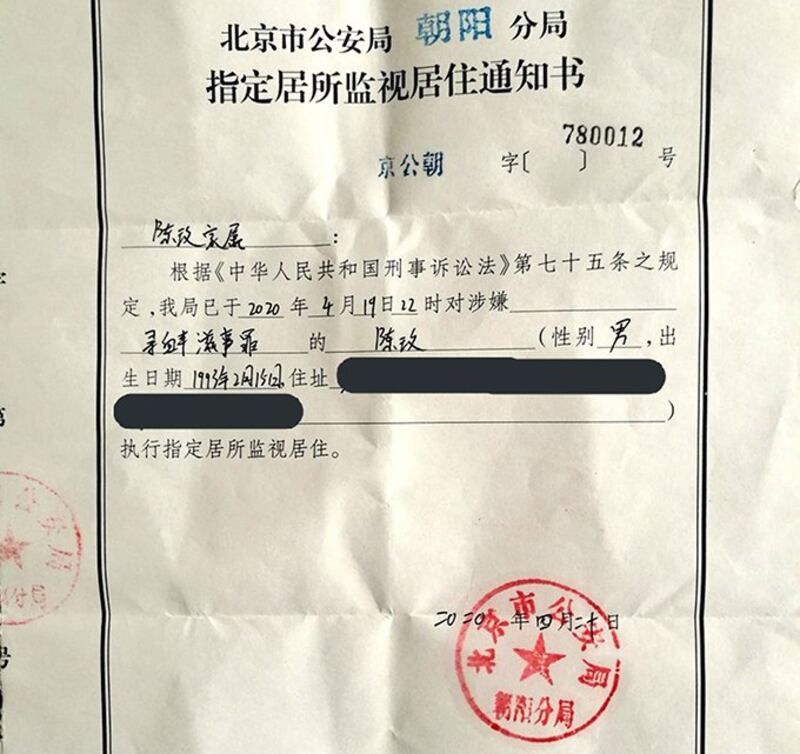 北京市公安局 朝阳 分局
指定居所监视居住通知书
780012
京公朝 字〔 〕 号
陈玫家属 ：
根据《中华人民共和国刑事诉讼法》第七十五条之规
定，我局已于 2020 年 4 月 19 日 22 时对涉嫌
寻衅滋事罪 的 陈玫 （性别 男 ，出
生日期 1993年2月15日 住址
）
执行指定居所监视居住。
二〇二〇 年四月二十日
北京市公安局
朝阳分局
第
号